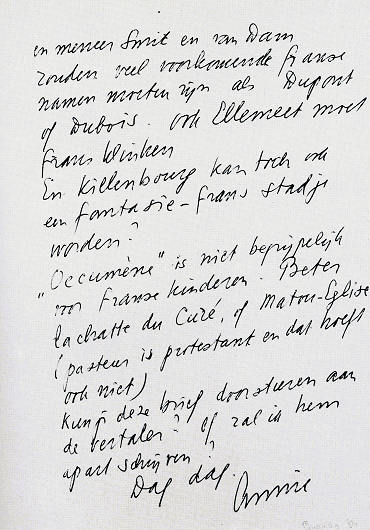 en meneer Smit en van Dam
zouden veel voorkomende franse
namen moeten zijn als Dupont
of Dubois. ook Ellemeet moet
frans klinken
En Killenbourg kan toch ook
een fantasie-frans stadje
worden?
"Oecumène" is niet begrijpelijk
voor franse kinderen. Beter
la chatte du Curé, of Matou-Eglise
(pasteur is protestant en dat hoeft
ook niet)
Kun je deze brief doorsturen aan
de vertaler? of zal ik hem
apart schrijven?
Dag dag.
Annie